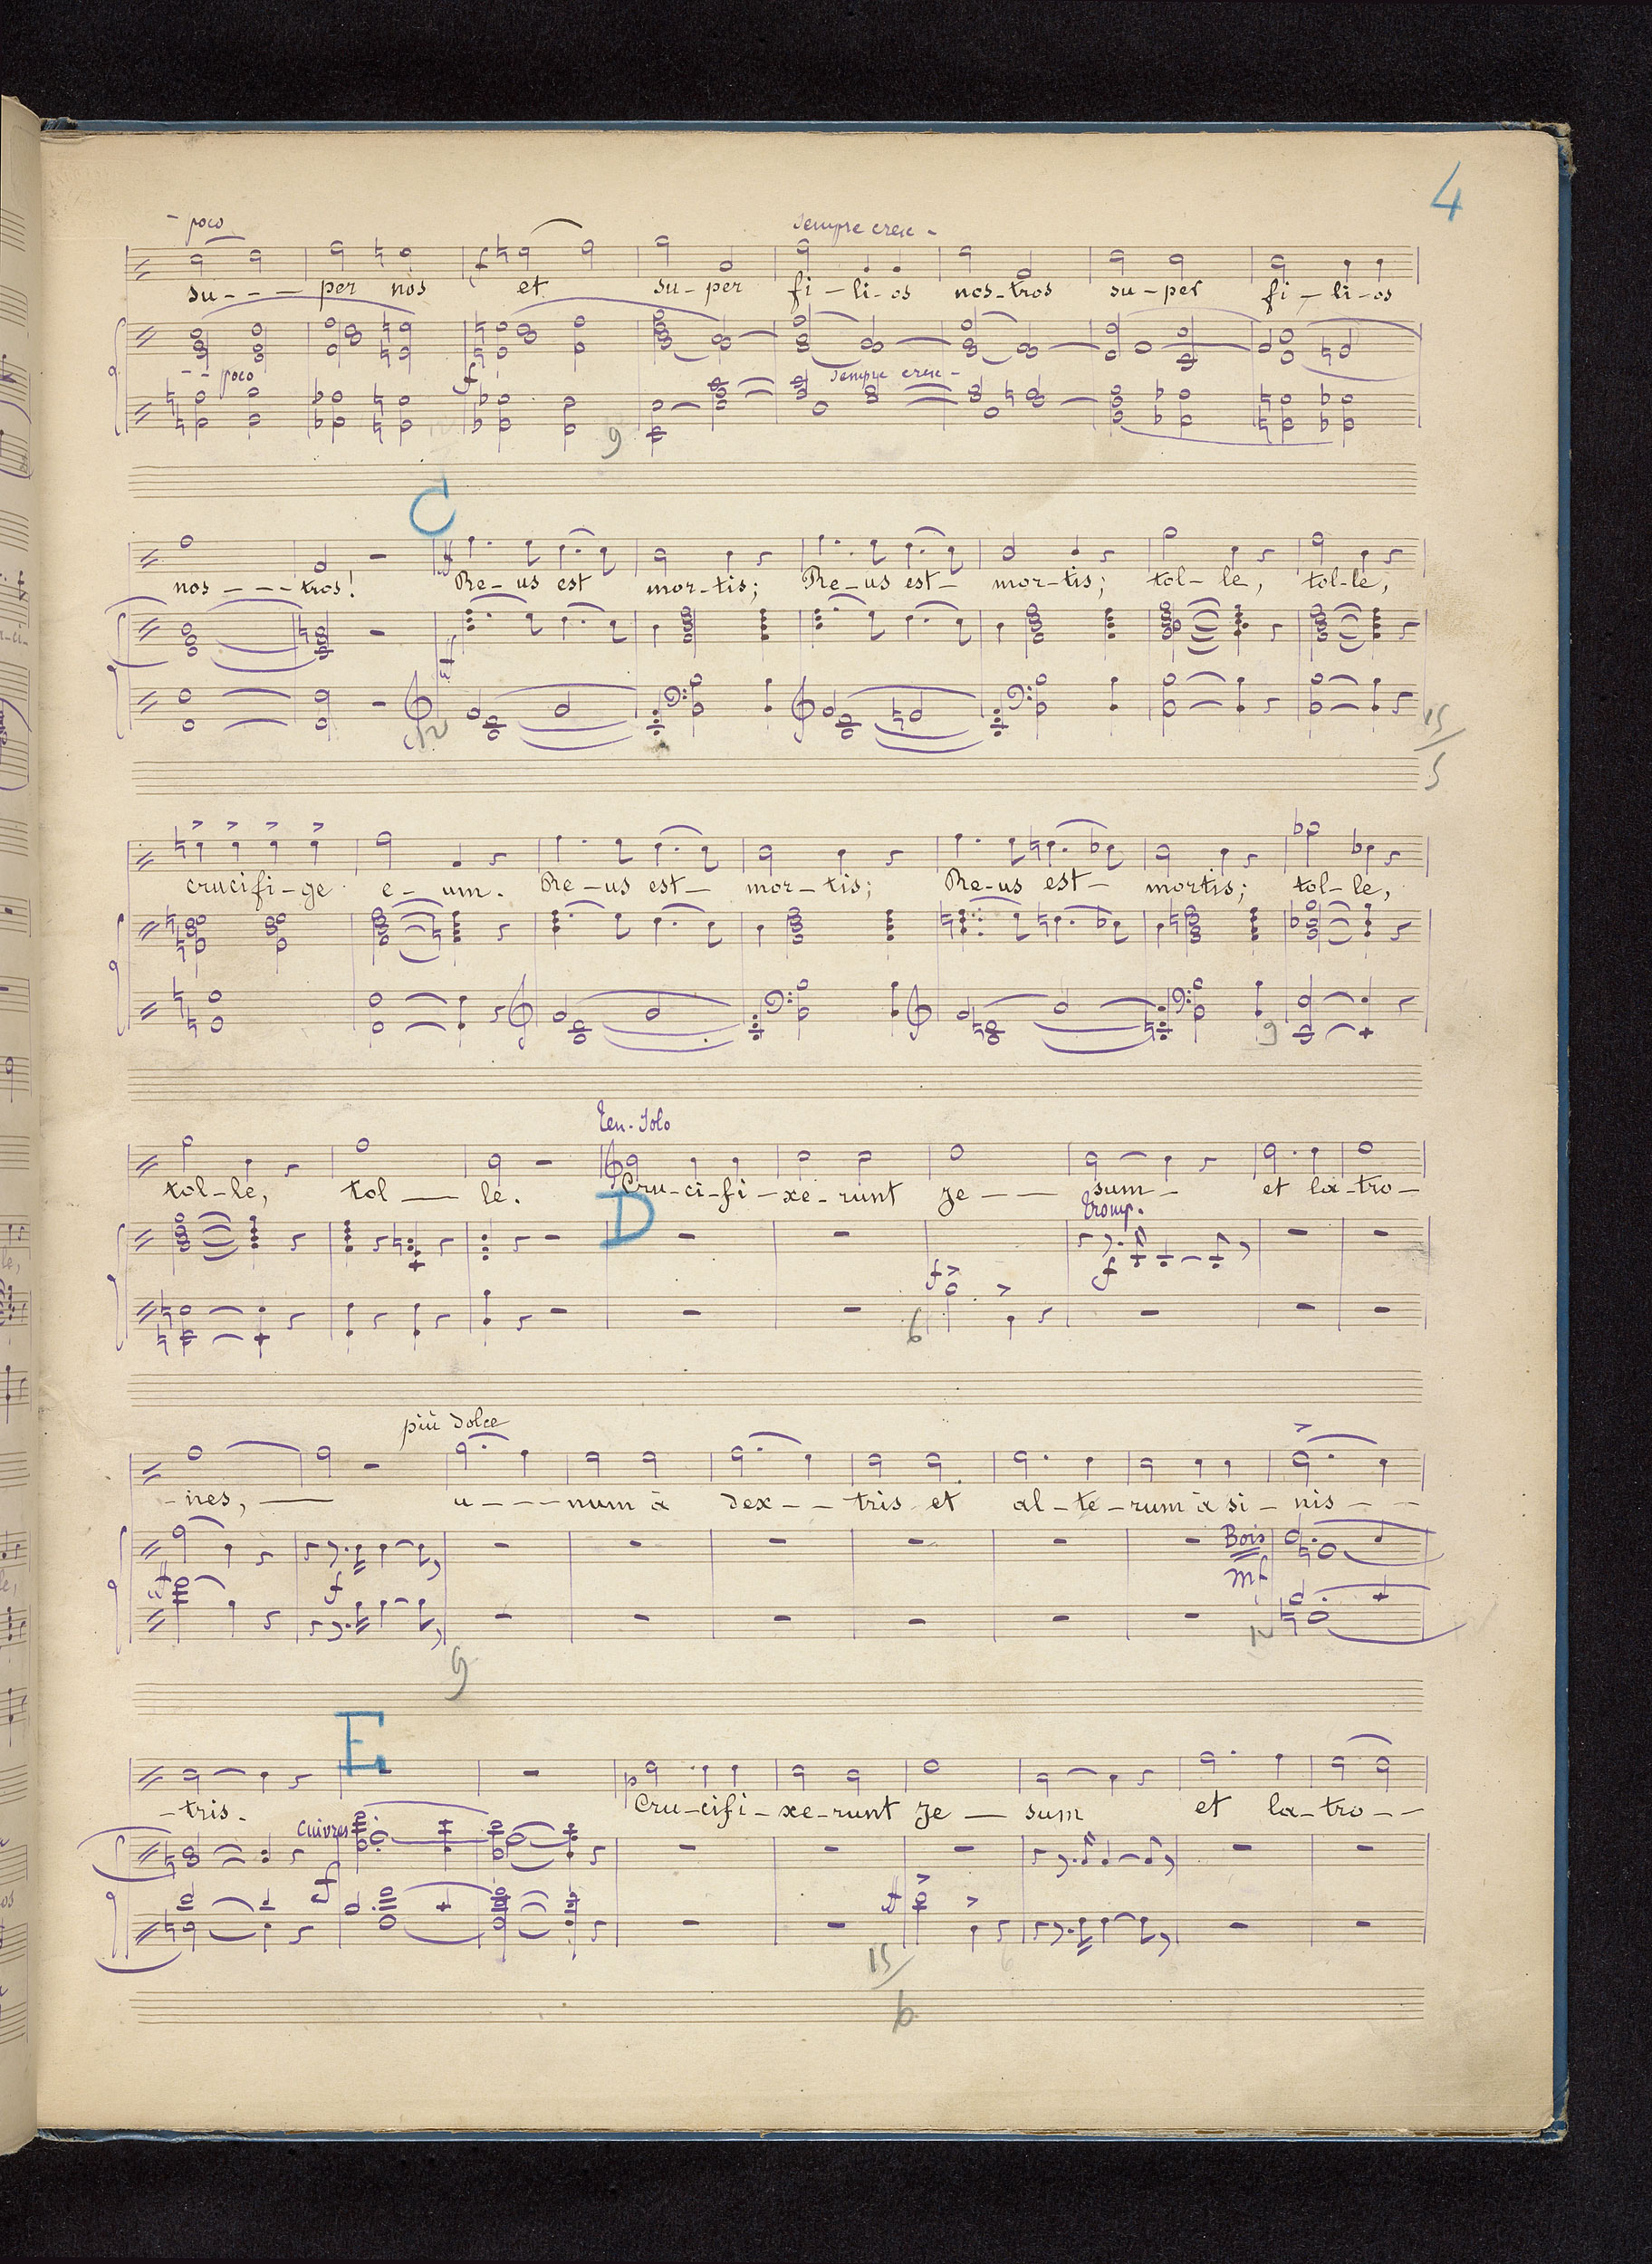 4
- poco sempre cresc -
su - - - per nos et su - per fi - li - os nos - tros su - per fi - li - os
f
- - poco f sempre cresc -
9
C
ff
nos - - - tros! Re - us est mor - tis; Re - us est - mor - tis; tol - le, tol - le,
ff
12
15
5
crucifi - ge e - um. Re - us est - mor - tis; Re - us est - mortis; tol - le,
9
Ten. Solo
tol - le, tol - le. Cru - ci - fi - xe - runt Je - - sum - et la - tro -
D Tromp.
f f
6
più dolce
- nes, - u - - - num à dex - - tris et al - te - rum à si - nis - -
Bois
ff f mf
9 12
E
p
- tris. Cru - cifi - xe - runt Je - sum et la - tro - -
Cuivres
ff ff
15
6